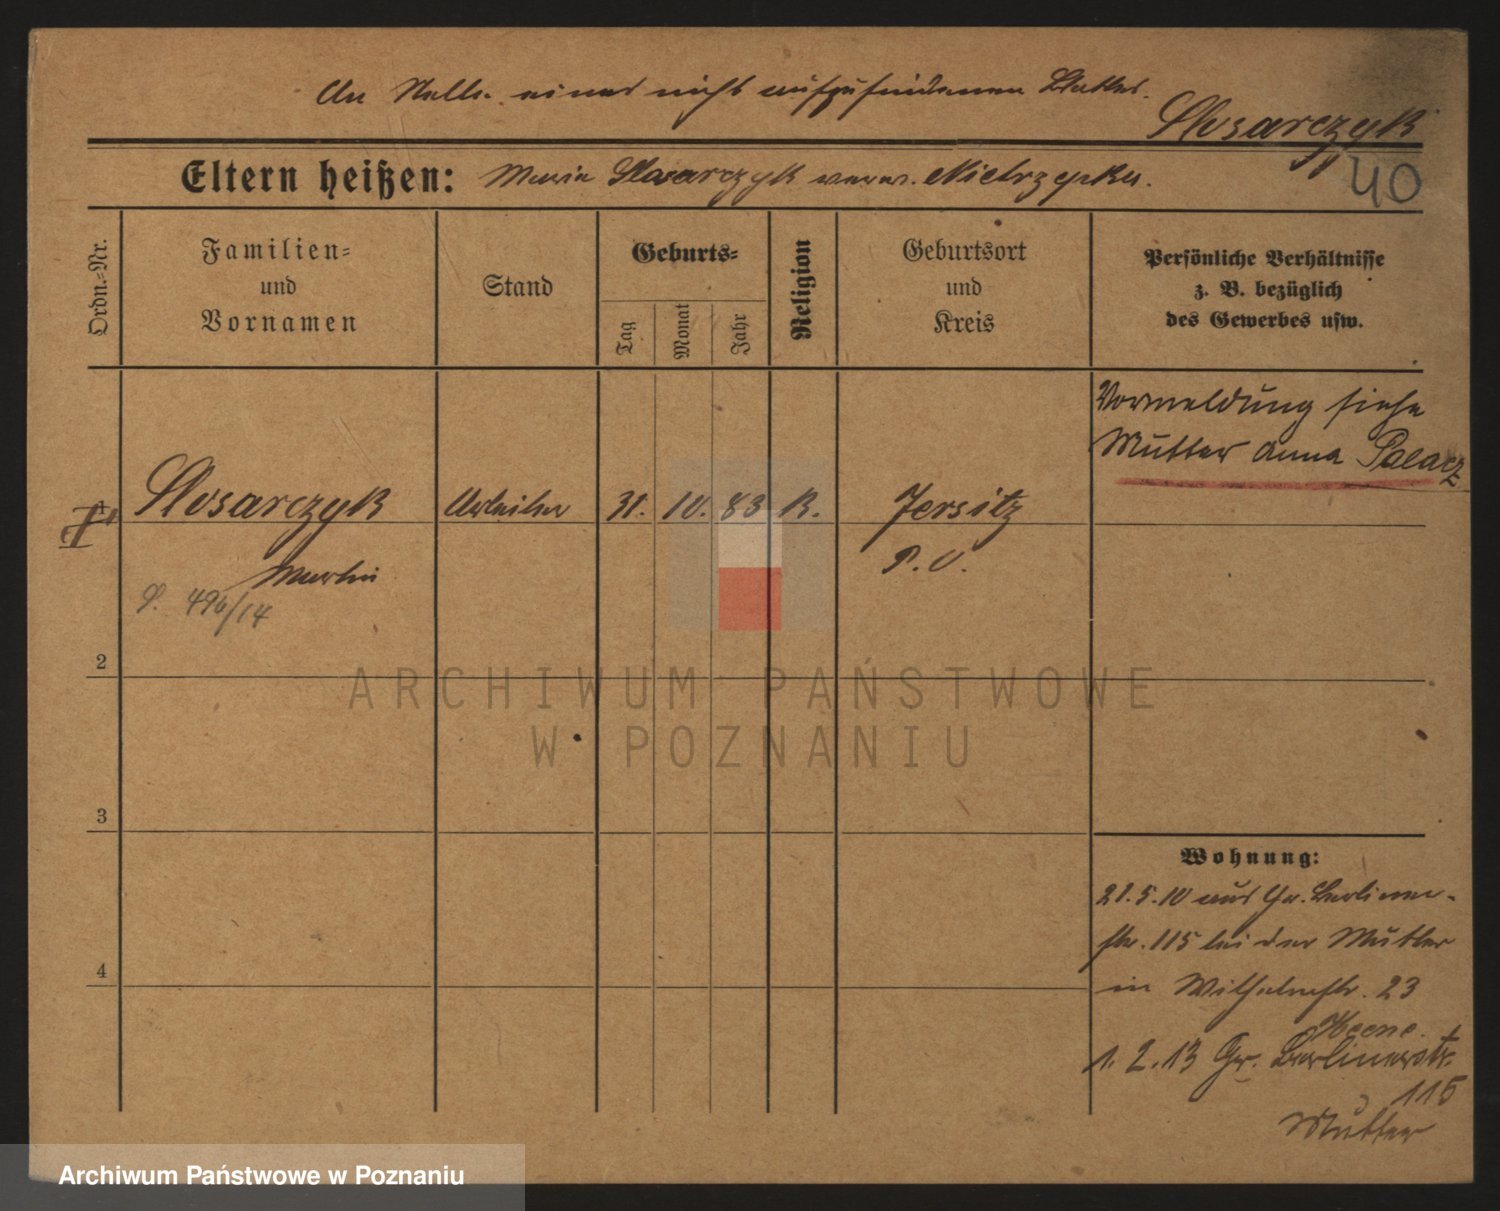 An Stelle eines nicht aufzufindenen Blattes.
Slosarczyk
Eltern heißen: Maria Slosarczyk verw. Nietrzepka.
40
Ordn.-Nr.
Familien-
und
Vornamen
Stand
Geburts-
Tag
Monat
Jahr
Religion
Geburtsort
und
Kreis
Persönliche Verhältnisse
z. B. bezüglich
des Gewerbes usw.
Vormeldung siehe
Mutter Anna Palacz
1 Slosarczyk Arbeiter 31. 10. 83 K. Jersitz
Martin P. O.
496/14
2
3
4
Wohnung:
21.5.10 aus Gr. Berliner-
str. 115 bei der Mutter
in Wilhelmstr. 23
1. 2. 13 Gr. Berlinerstr.
115
Mutter
ARCHIWUM PAŃSTWOWE
W POZNANIU
Archiwum Państwowe w Poznaniu